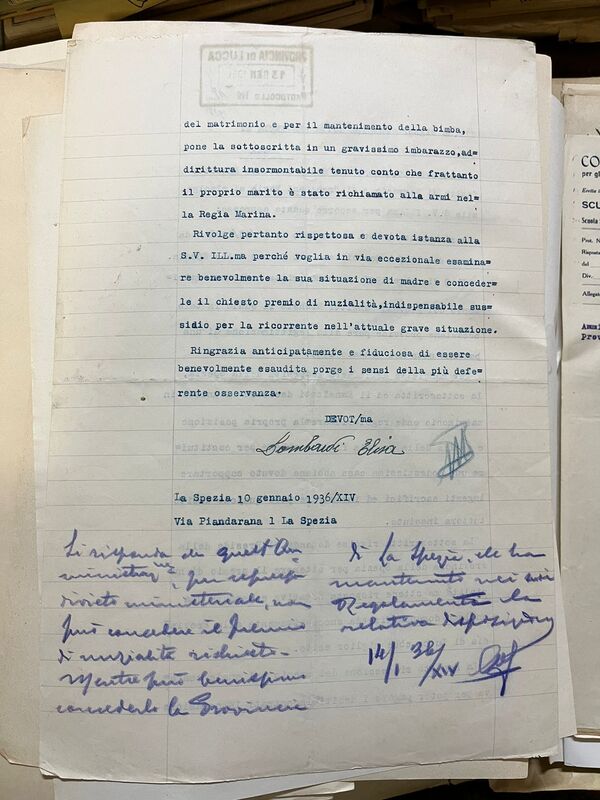 PROVINCIA DI LUCCA
13 GEN
PROTOCOLLO
del matrimonio e per il mantenimento della bimba,
pone la sottoscritta in un gravissimo imbarazzo,ad=
dirittura insormontabile tenuto conto che frattanto
il proprio marito è stato richiamato alla armi nel=
la Regia Marina.
Rivolge pertanto rispettosa e devota istanza alla
S.V. ILL.ma perché voglia in via eccezionale esamina=
re benevolmente la sua situazione di madre e conceder=
le il chiesto premio di nuzialità,indispensabile sus=
sidio per la ricorrente nell'attuale grave situazione.
Ringrazia anticipatamente e fiduciosa di essere
benevolmente esaudita porge i sensi della più defe=
rente osservanza.
DEVOT/ma
Lombardi Elisa
La Spezia 10 gennaio 1936/XIV
Via Piandarana 1 La Spezia
Si risponda che quest'Am
ministraz.ne, per espresso
divieto ministeriale, non
può concedere il Premio
di nuzialità richiesto.
Mentre può benissimo
concederlo la Provincia
di La Spezia, che ha
mantenuto nei suoi
Regolamenti la
relativa disposizione
14/1 36/XIV
CO
per gl
SCU
Scuola
Prot. N
Risposta
del
Div.
Allegat
Ammi
Prov